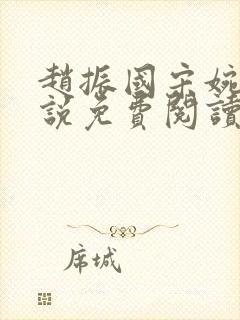 趙振國宋婉
說免費閱讀
席城